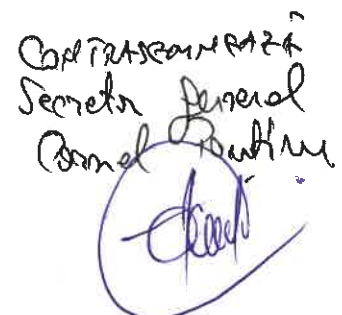 CONTRASEMNEAZĂ
Secretar general
Cornel